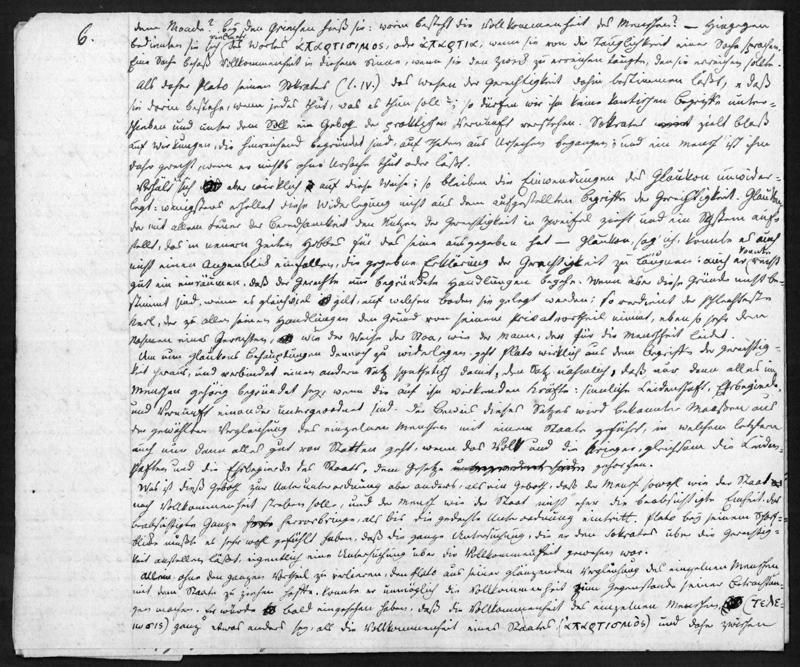 6.
dem Monde? bey den Griechen hieß sie: worin besteht die Vollkommenheit des Menschen? — Hingegen
bedienten sie sich des Wortes απαρτισμος, oder απαρτια, wenn sie von der Tauglichkeit einer Sache sprachen.
Eine Sache besaß Vollkommenheit in diesem Sinne, wenn sie den Zweck zu erreichen taugte, den sie erreichen sollte.
Als daher Plato seinen Sokrates (l. IV.) das Wesen der Gerechtigkeit dahin bestimmen läßt, daß
sie darin bestehe, wenn jedes thut, was es thun soll; so dürfen wir ihm keine kantischen Begriffe unter-
schieben und unter dem Soll ein Geboth der praktischen Vernunft verstehen. Sokrates zielt bloß
auf Wirkungen, die hinreichend begründet sind, auf Thaten aus Ursachen begangen; und ein Mensch ist ihm
daher gerecht, wenn er nichts ohne Ursache thut oder läßt.
Verhält sich aber wirklich auf diese Weise; so bleiben die Einwendungen des Glaukon unwider-
legt: wenigstens erhellet diese Widerlegung nicht aus dem aufgestellten Begriffe der Gerechtigkeit. Glaukon,
der mit allem Feuer der Beredsamkeit den Nutzen der Gerechtigkeit in Zweifel zieht und ein System auf-
stellt, das in neuern Zeiten Hobbes für das seine ausgegeben hat — Glaukon, sag' ich, konnte es auch
nicht einen Augenblick einfallen, die gegebene Erklärung der Gerechtigkeit zu läugnen: auch er konnte recht
gut einräumen, daß der Gerechte nur begründete Handlungen begehe. Wenn aber diese Gründe nicht be-
stimmt sind, wenn es gleichviel gilt, auf welchen Boden sie gelegt werden; so verdient der schlechteste
Kerl, der zu allen seinen Handlungen den Grund von seinem Privatvortheil nimmt, eben so sehr den
Nahmen eines Gerechten, wie der Weise der Stoa, wie der Mann, der für die Menschheit leidet.
Um nun Glaukons Behauptungen dennoch zu widerlegen, geht Plato wirklich aus dem Begriffe der Gerechtig-
keit heraus, und verbindet einen andern Satz synthetisch damit, den Satz nähmlich, daß nur dann alles im
Menschen gehörig begründet sey, wenn die auf ihn wirkenden Kräfte: sinnliche Leidenschaft, Ehrbegierde
und Vernunft einander untergeordnet sind. Der Beweis dieses Satzes wird bekannter Maaßen aus
der gewählten Vergleichung des einzelnen Menschen mit einem Staate geführt, in welchem letztern
auch nur dann alles gut von Statten geht, wenn das Volk und die Krieger, gleichsam die Leiden-
schaften und die Ehrbegierde des Staats, dem Gesetze gehorchen.
Was ist dieß Geboth zur Unterordnung aber anders, als ein Geboth, daß der Mensch sowohl wie der Staat
nach Vollkommenheit streben solle, und der Mensch wie der Staat nicht eher die beabsichtigte Einheit, das
beabsichtigte Ganze hervorbringe, als bis die gedachte Unterordnung eintritt. Plato bey seinem Scharf-
blicke mußte es sehr wohl gefühlt haben, daß die ganze Untersuchung, die er den Sokrates über die Gerechtig-
keit anstellen läßt, eigentlich eine Untersuchung über die Vollkommenheit gewesen war.
Allein ohne den ganzen Vortheil zu verlieren, den Plato aus seiner glänzenden Vergleichung des einzelnen Menschen
mit dem Staate zu ziehen hoffte, konnte er unmöglich die Vollkommenheit zum Gegenstande seiner Betrachtun-
gen machen. Er würde bald eingesehen haben, daß die Vollkommenheit des einzelnen Menschen (τελε-
ιωσις) ganz etwas anders sey, als die Vollkommenheit eines Staates (απαρτισμος) und daher zwischen